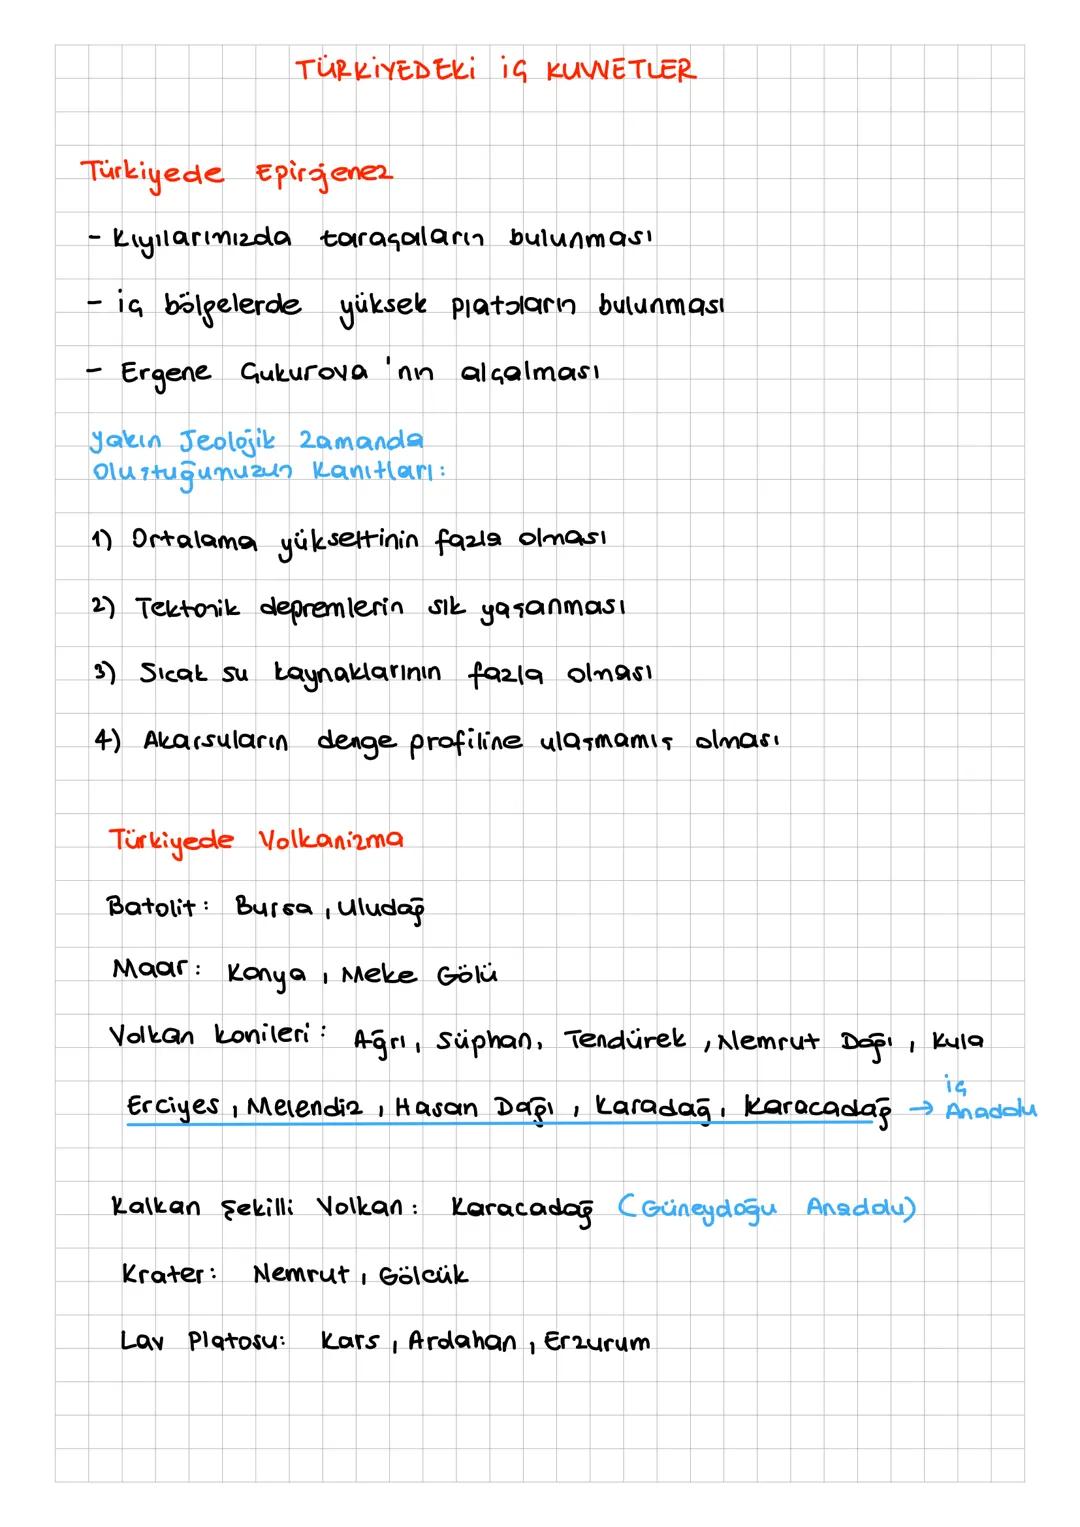 TÜRKİYEDEKİ İÇ KUVVETLER
Türkiyede Epirojenez
- Kıyılarımızda taraçaların bulunması
- iç bölgelerde yüksek platoların bulunması
- Ergene Çukurova'nın alçalması
Yakın Jeolojik Zamanda
Oluştuğumuzun Kanıtları:
1) Ortalama yükseltinin fazla olması
2) Tektonik depremlerin sık yaşanması
3) Sıcak su kaynaklarının fazla olması
4) Akarsuların denge profiline ulaşmamış olması
Türkiyede Volkanizma
Batolit: Bursa, Uludağ
Maar: Konya, Meke Gölü
Volkan konileri: Ağrı, Süphan, Tendürek, Nemrut Dağı, Kula
Erciyes, Melendiz, Hasan Dağı, Karadağ, Karacadağ → iç Anadolu
Kalkan Şekilli Volkan: Karacadağ (Güneydoğu Anadolu)
Krater: Nemrut, Gölcük
Lav Platosu: Kars, Ardahan, Erzurum